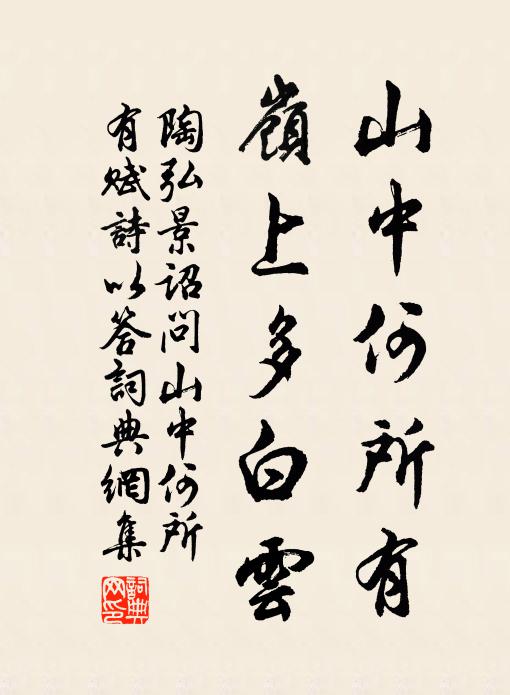 山中何所有
嶺上多白雲
陶弘景詔問山中何所
有賦詩以答詞典網集
詞典網印